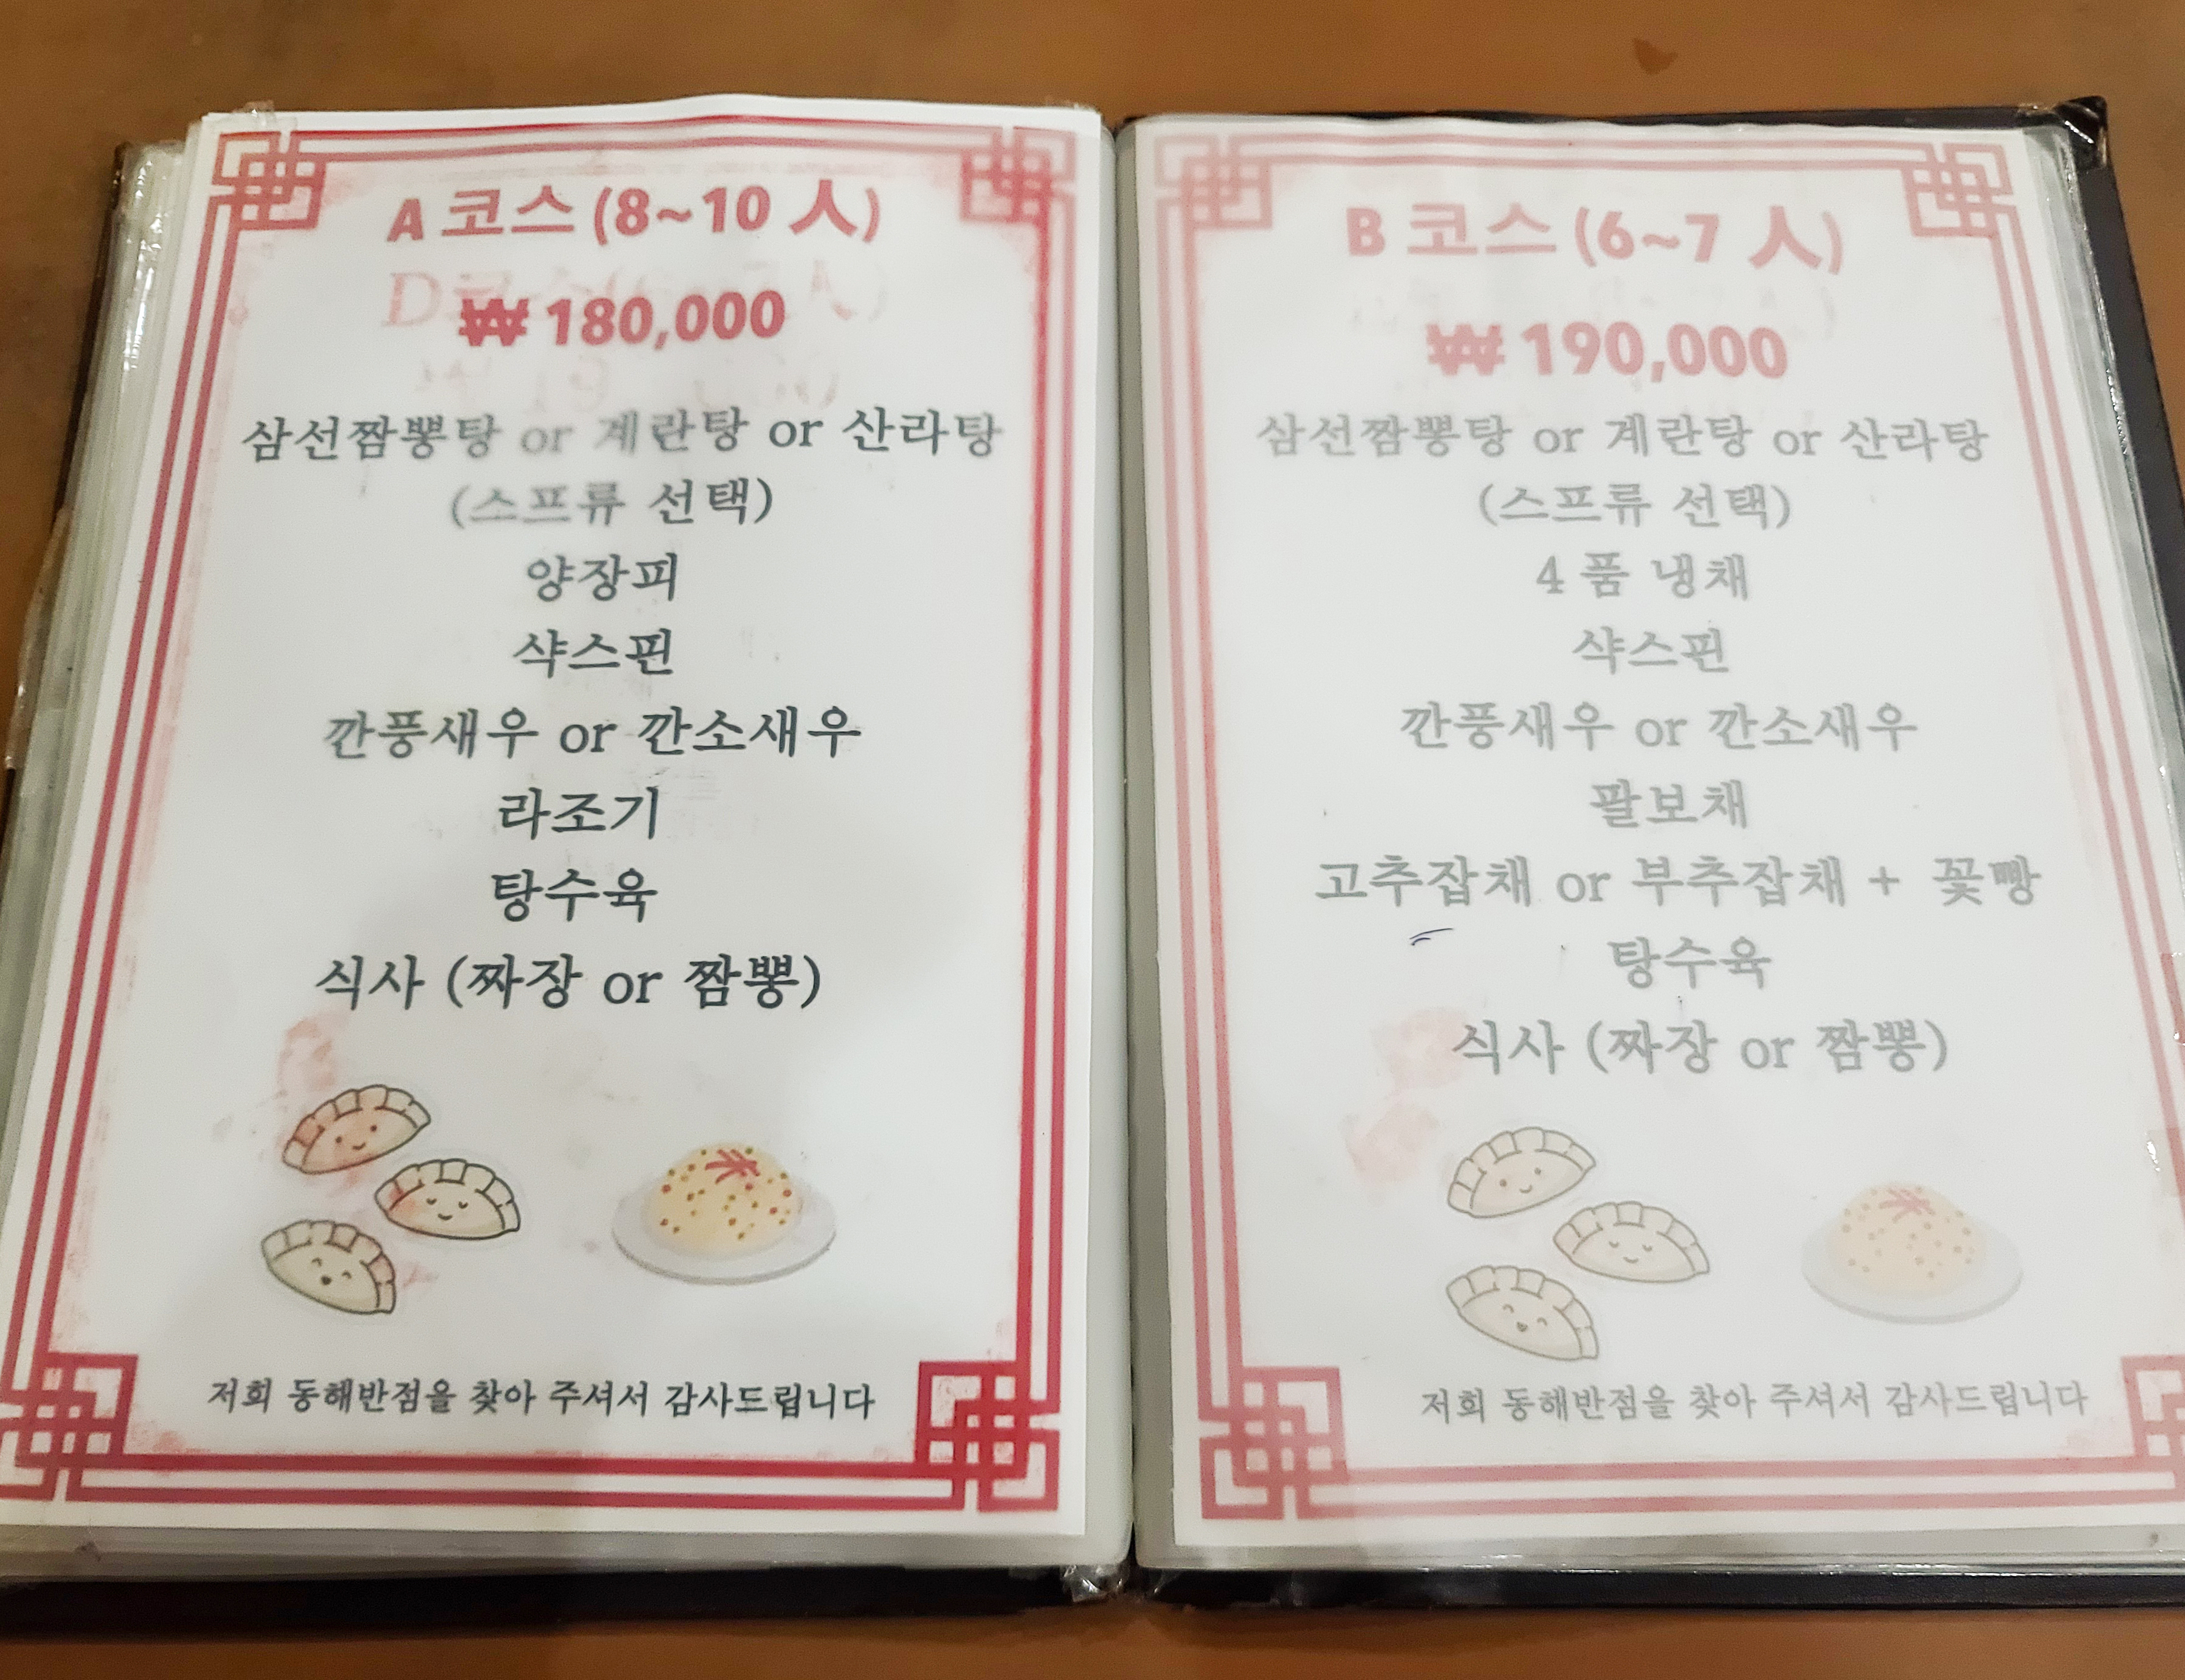 A 코스 (8~10 人)
₩ 180,000
삼선짬뽕탕 or 계란탕 or 산라탕
(스프류 선택)
양장피
샥스핀
깐풍새우 or 깐소새우
라조기
탕수육
식사 (짜장 or 짬뽕)
저희 동해반점을 찾아 주셔서 감사드립니다
B 코스 (6~7 人)
₩ 190,000
삼선짬뽕탕 or 계란탕 or 산라탕
(스프류 선택)
4 품 냉채
샥스핀
깐풍새우 or 깐소새우
팔보채
고추잡채 or 부추잡채 + 꽃빵
탕수육
식사 (짜장 or 짬뽕)
저희 동해반점을 찾아 주셔서 감사드립니다